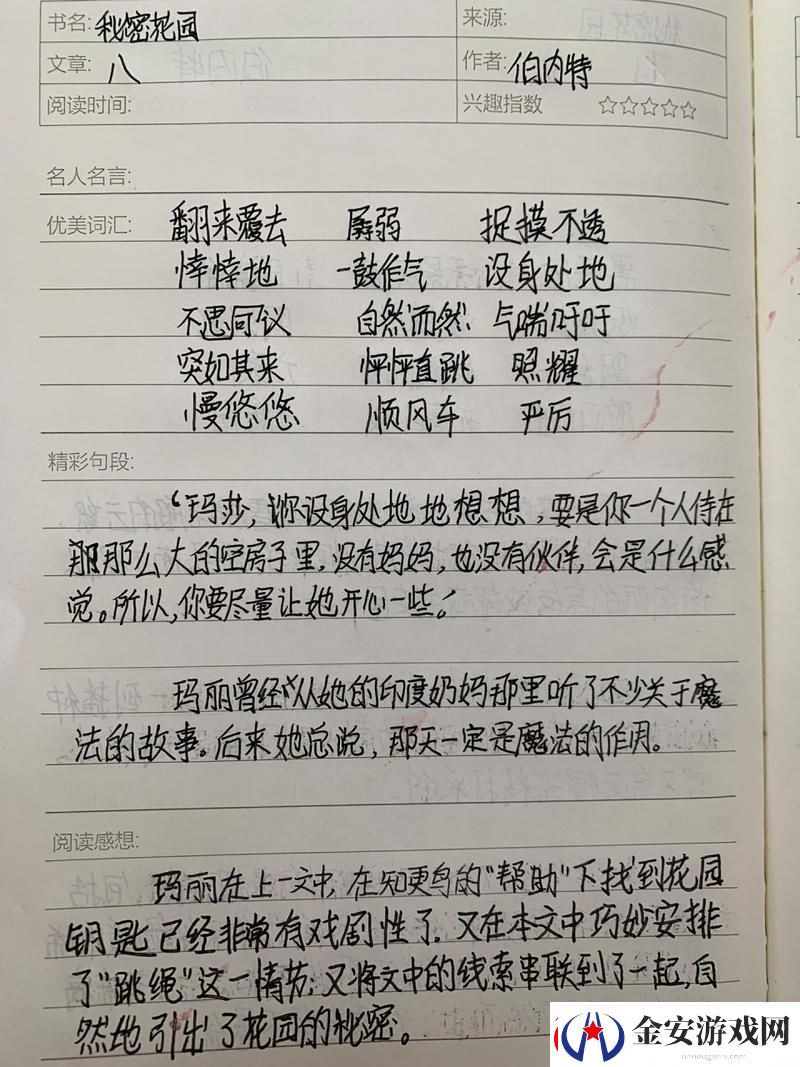 书名: 秘密花园 来源:
文章: 八 作者: 伯内特
阅读时间: 兴趣指数 ☆☆☆☆☆
名人名言:
优美词汇: 翻来覆去 孱弱 捉摸不透
悻悻地 一鼓作气 设身处地
不思议 自然而然 气喘吁吁
突如其来 怦怦直跳 照耀
慢悠悠 顺风车 严厉
精彩句段:
“玛莎,你设身处地地想想,要是你一个人待在
那那么大的空房子里,没有妈妈,也没有伙伴,会是什么感
觉。所以,你要尽量让她开心一些!
玛丽曾经从她的印度奶妈那里听了不少关于魔
法的故事。后来她总说,那天一定是魔法的作用。
阅读感想:
玛丽在上一文中,在知更鸟的“帮助”下找到花园
钥匙已经非常有戏剧性了.又在本文中巧妙安排
了“跳绳”这一情节;又将文中的线索串联到了一起,自
然地引出了花园的秘密。
金安游戏网